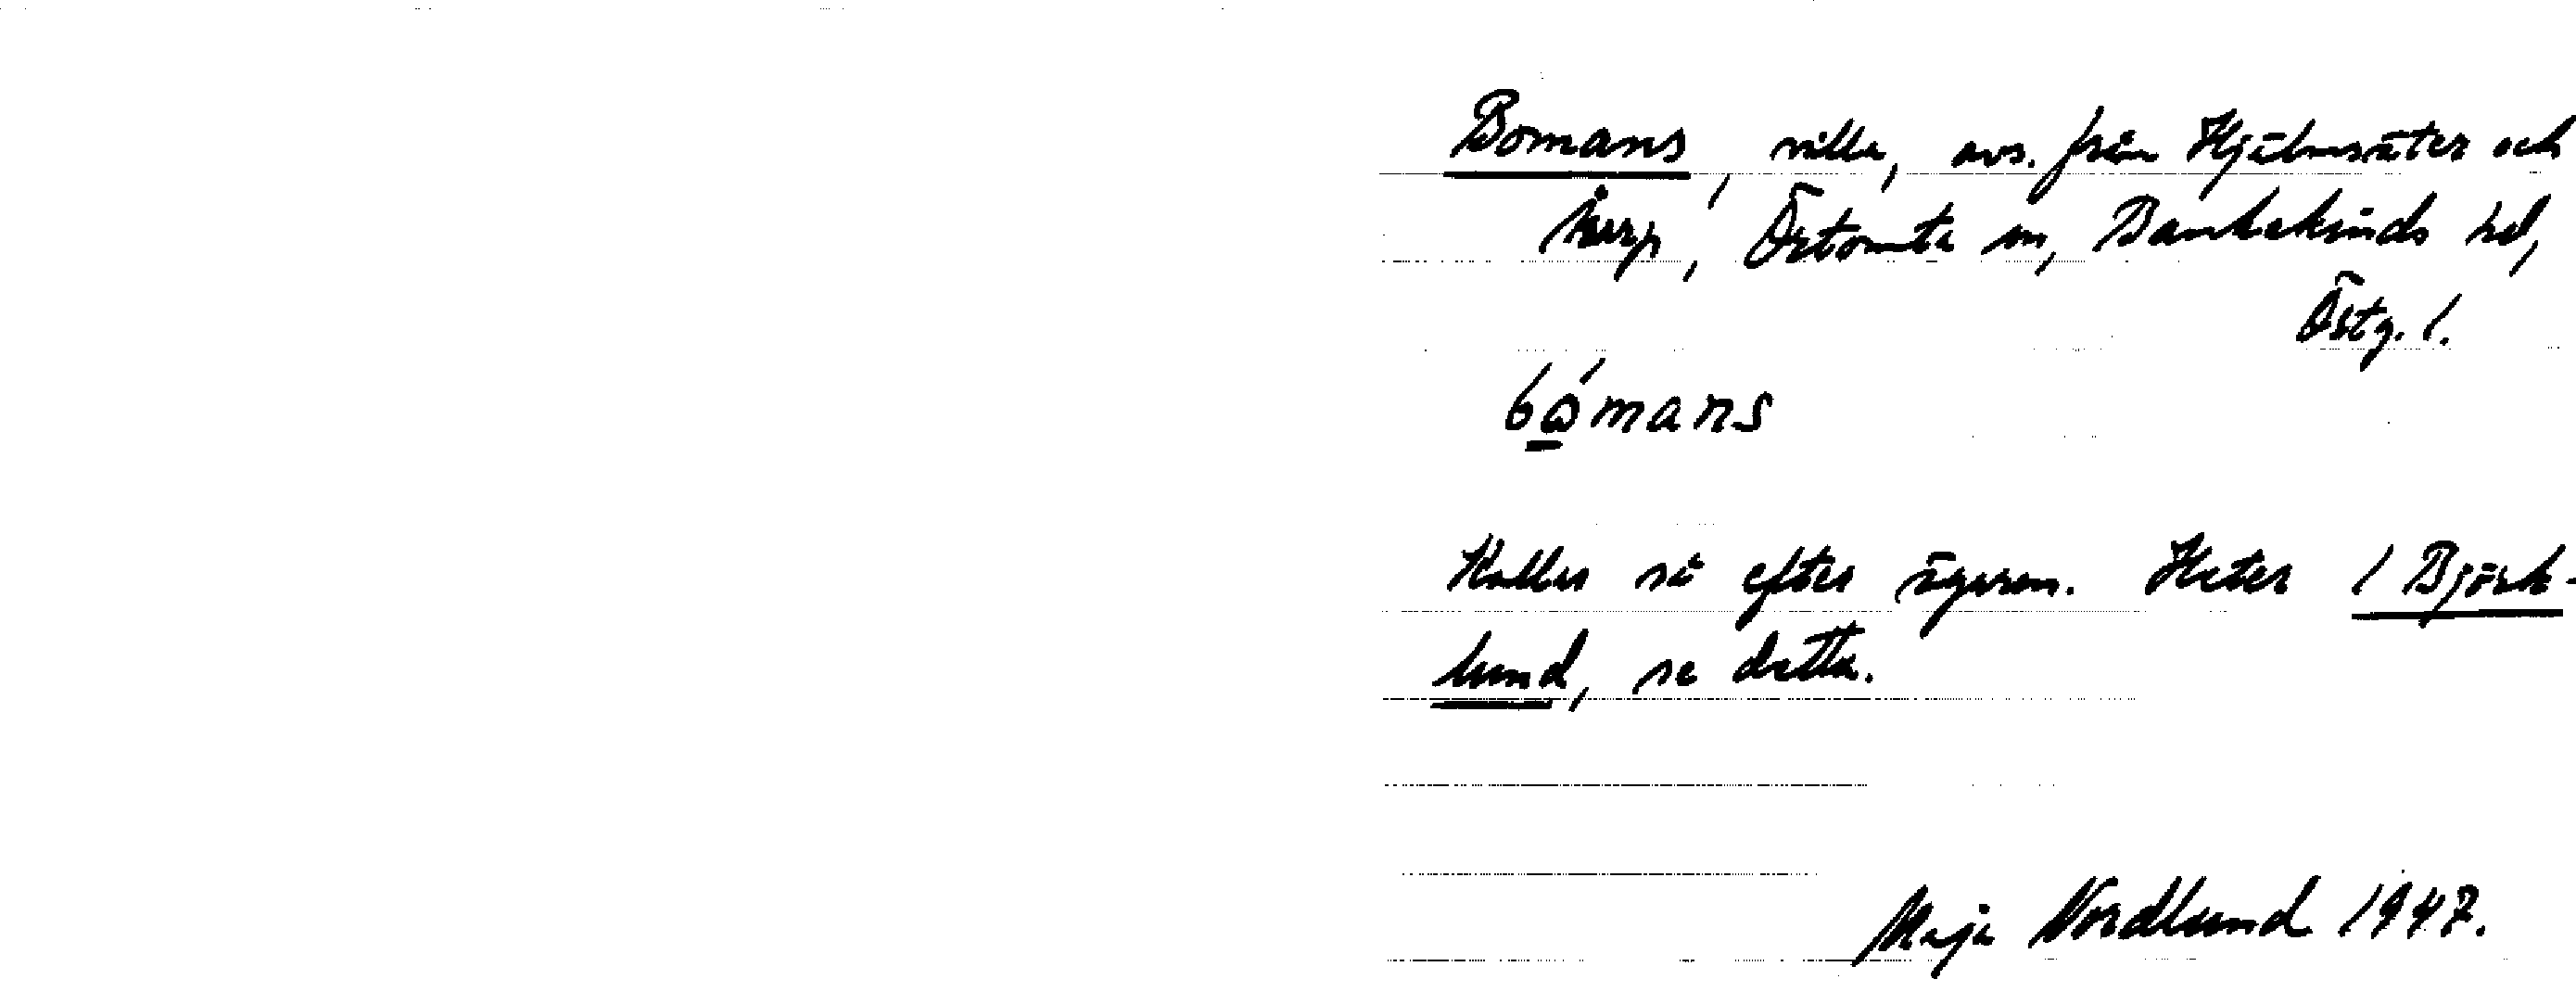 Bomans, villa, avs. från Hjälmsäter och
Årp, Örtomta sn, Bankekinds hd,
Östg. l.
bώ̲mans
Kallas så efter ägaren. Heter / Björk-
lund, se detta.
Maja Nordlund 1947.